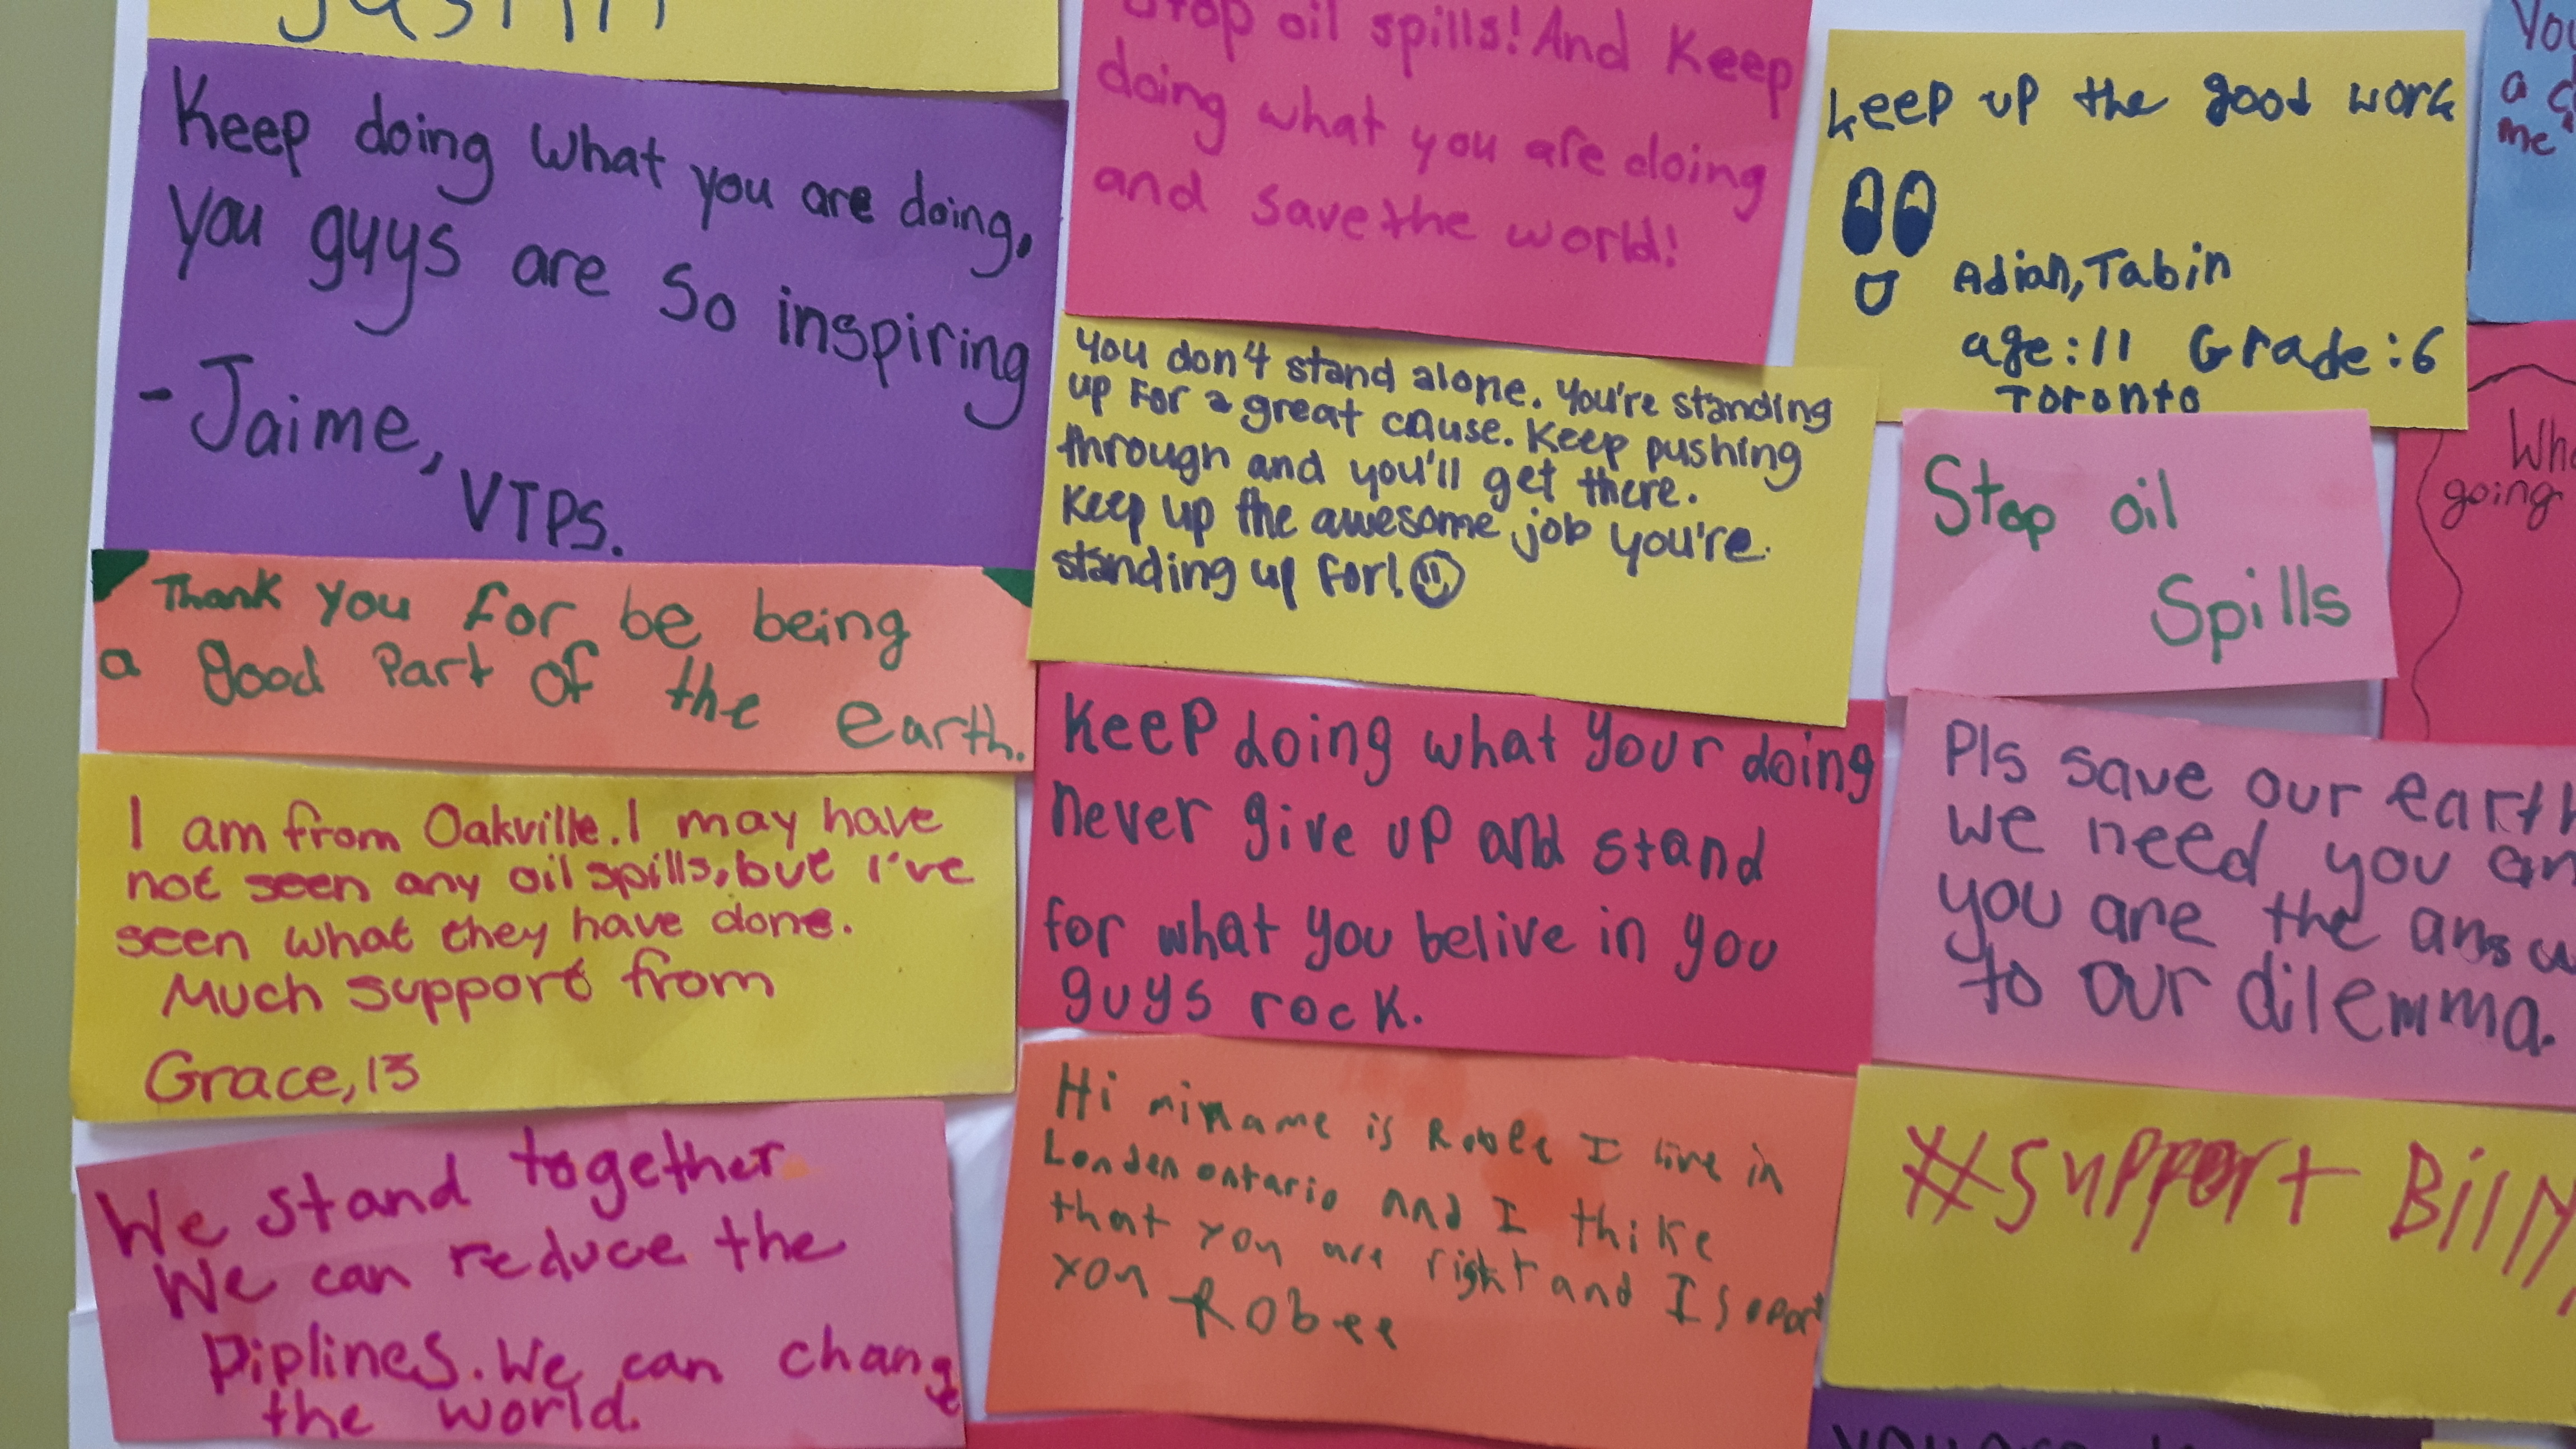 Justin
Keep doing what you are doing,
you guys are so inspiring
- Jaime,
VTPS.
Thank you for be being
a good part of the earth.
I am from Oakville. I may have
not seen any oil spills, but I've
seen what they have done.
Much support from
Grace, 13
We stand together
We can reduce the
Piplines. We can change
the world.
Stop oil spills! And Keep
doing what you are doing
and save the world!
You don't stand alone. You're standing
up for a great cause. Keep pushing
through and you'll get there.
Keep up the awesome job you're
standing up for!
Keep doing what your doing
never give up and stand
for what you belive in you
guys rock.
Hi mi name is Robee I live in
London ontario and I thike
that you are right and I soport
you Robee
keep up the good work
Adian, Tabin
age: 11 Grade: 6
Toronto
Stop oil
Spills
Pls save our earth
we need you an
you are the answ
to our dilemma.
#Support Billy
You
a
me
Wh
going